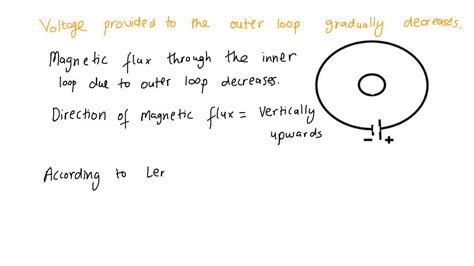 Voltage provided to the outer loop gradually decreases.
Magnetic flux through the inner
loop due to outer loop decreases.
Direction of magnetic flux = Vertically
upwards
- +
According to Len